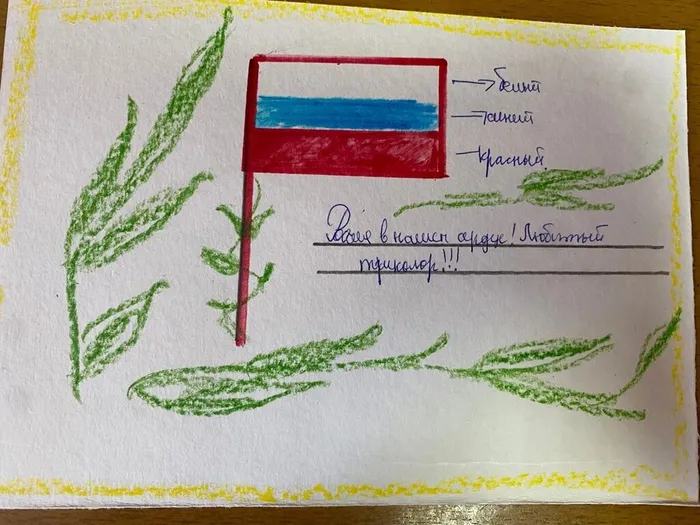 белый
синий
красный
в нашем сердце! Любимый
триколор!!!